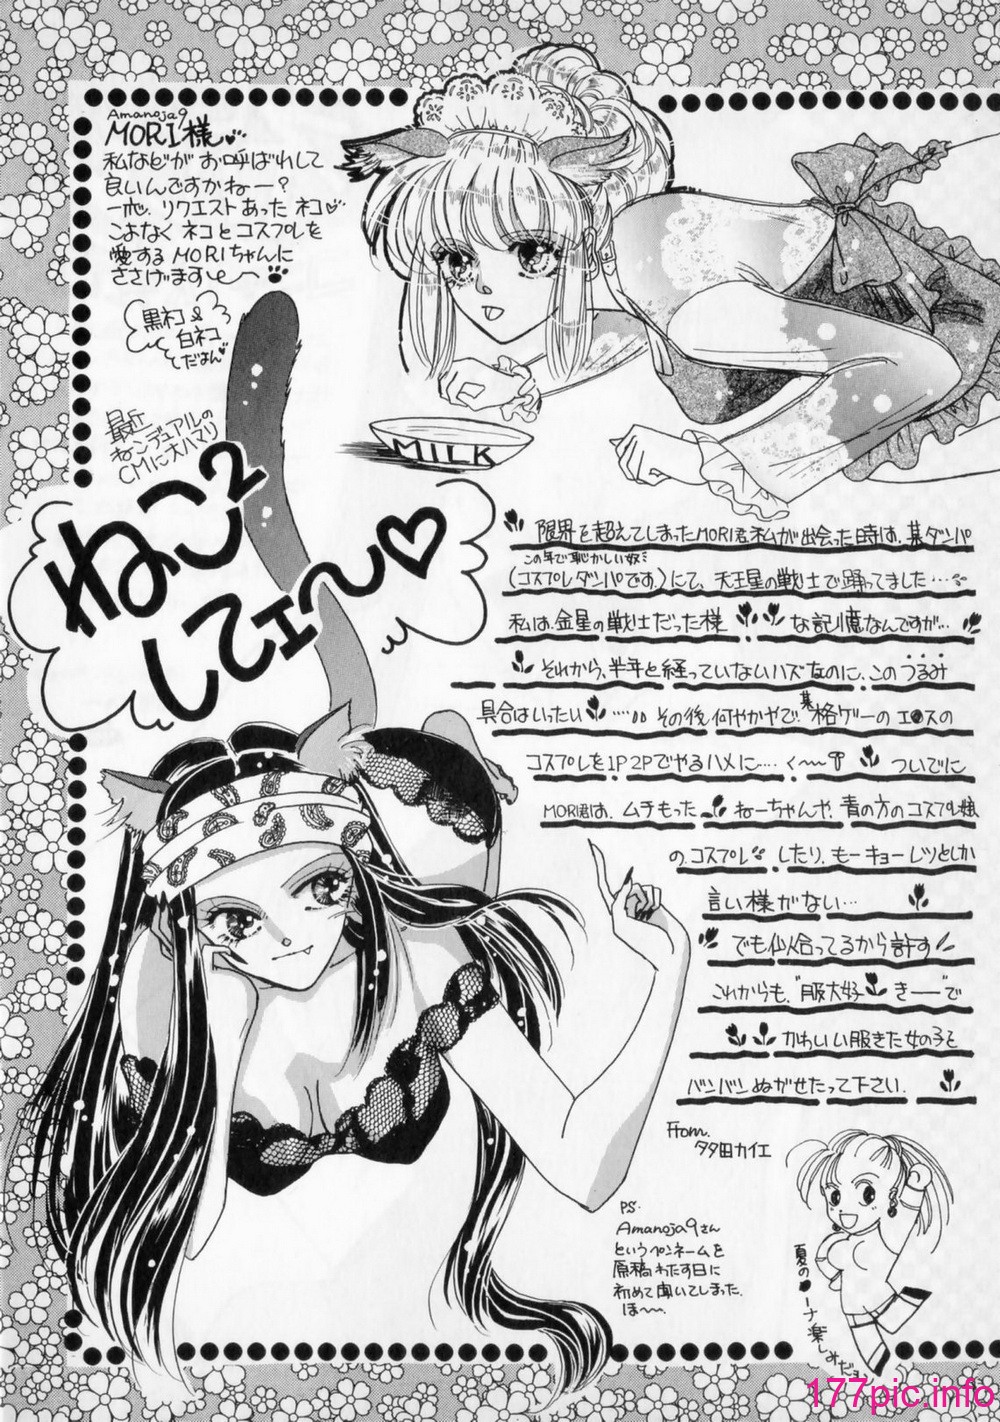 Amanoja9
MORI様
私などがお呼ばれして
良いんですかねー?
一応、リクエストあったネコ♡
こよなくネコとコスプレを
愛するMORIちゃんに
ささげます
黒ネコ&
白ネコ
だよん♡
最近
ねこデュアルの
CMに大ハマリ
MILK
ねこ2
してェ〜♡
限界を超えてしまったMORI君、私が出会った時は、某ダンパ
この年で恥かしい奴…
(コスプレダンパです。)にて、天王星の戦士で踊ってました…
私は、金星の戦士だった様
な記憶なんですが…
それから、半年と経っていないハズなのに、このうるみ
具合はいったい……
その後何やかやで、某格ゲーのエ●スの
コスプレを1P2Pでやるハメに…
ついでに
MORI君は、ムチもった
ねーちゃんや、青の方のコスプレ娘
の、コスプレしたり、もーキョーレツとしか
言い様がない…
でも似合ってるから許す
これからも、"服大好きー"で
かわいい服きた女の子を
バンバンぬがせたって下さい。
From.
タタ田カイエ
PS.
Amanoja9さん
というペンネームを
原稿わたす日に
初めて聞いてしまった。
ほ〜。
夏の●ーナ楽しみだョ
177pic.info